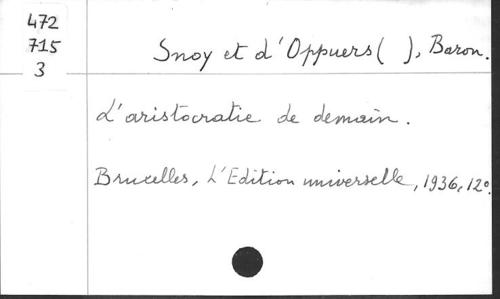 472
715
3
Snoy et d'Oppuers ( ), Baron.
L'aristocratie de demain.
Bruxelles, L'Edition universelle, 1936, 12°.